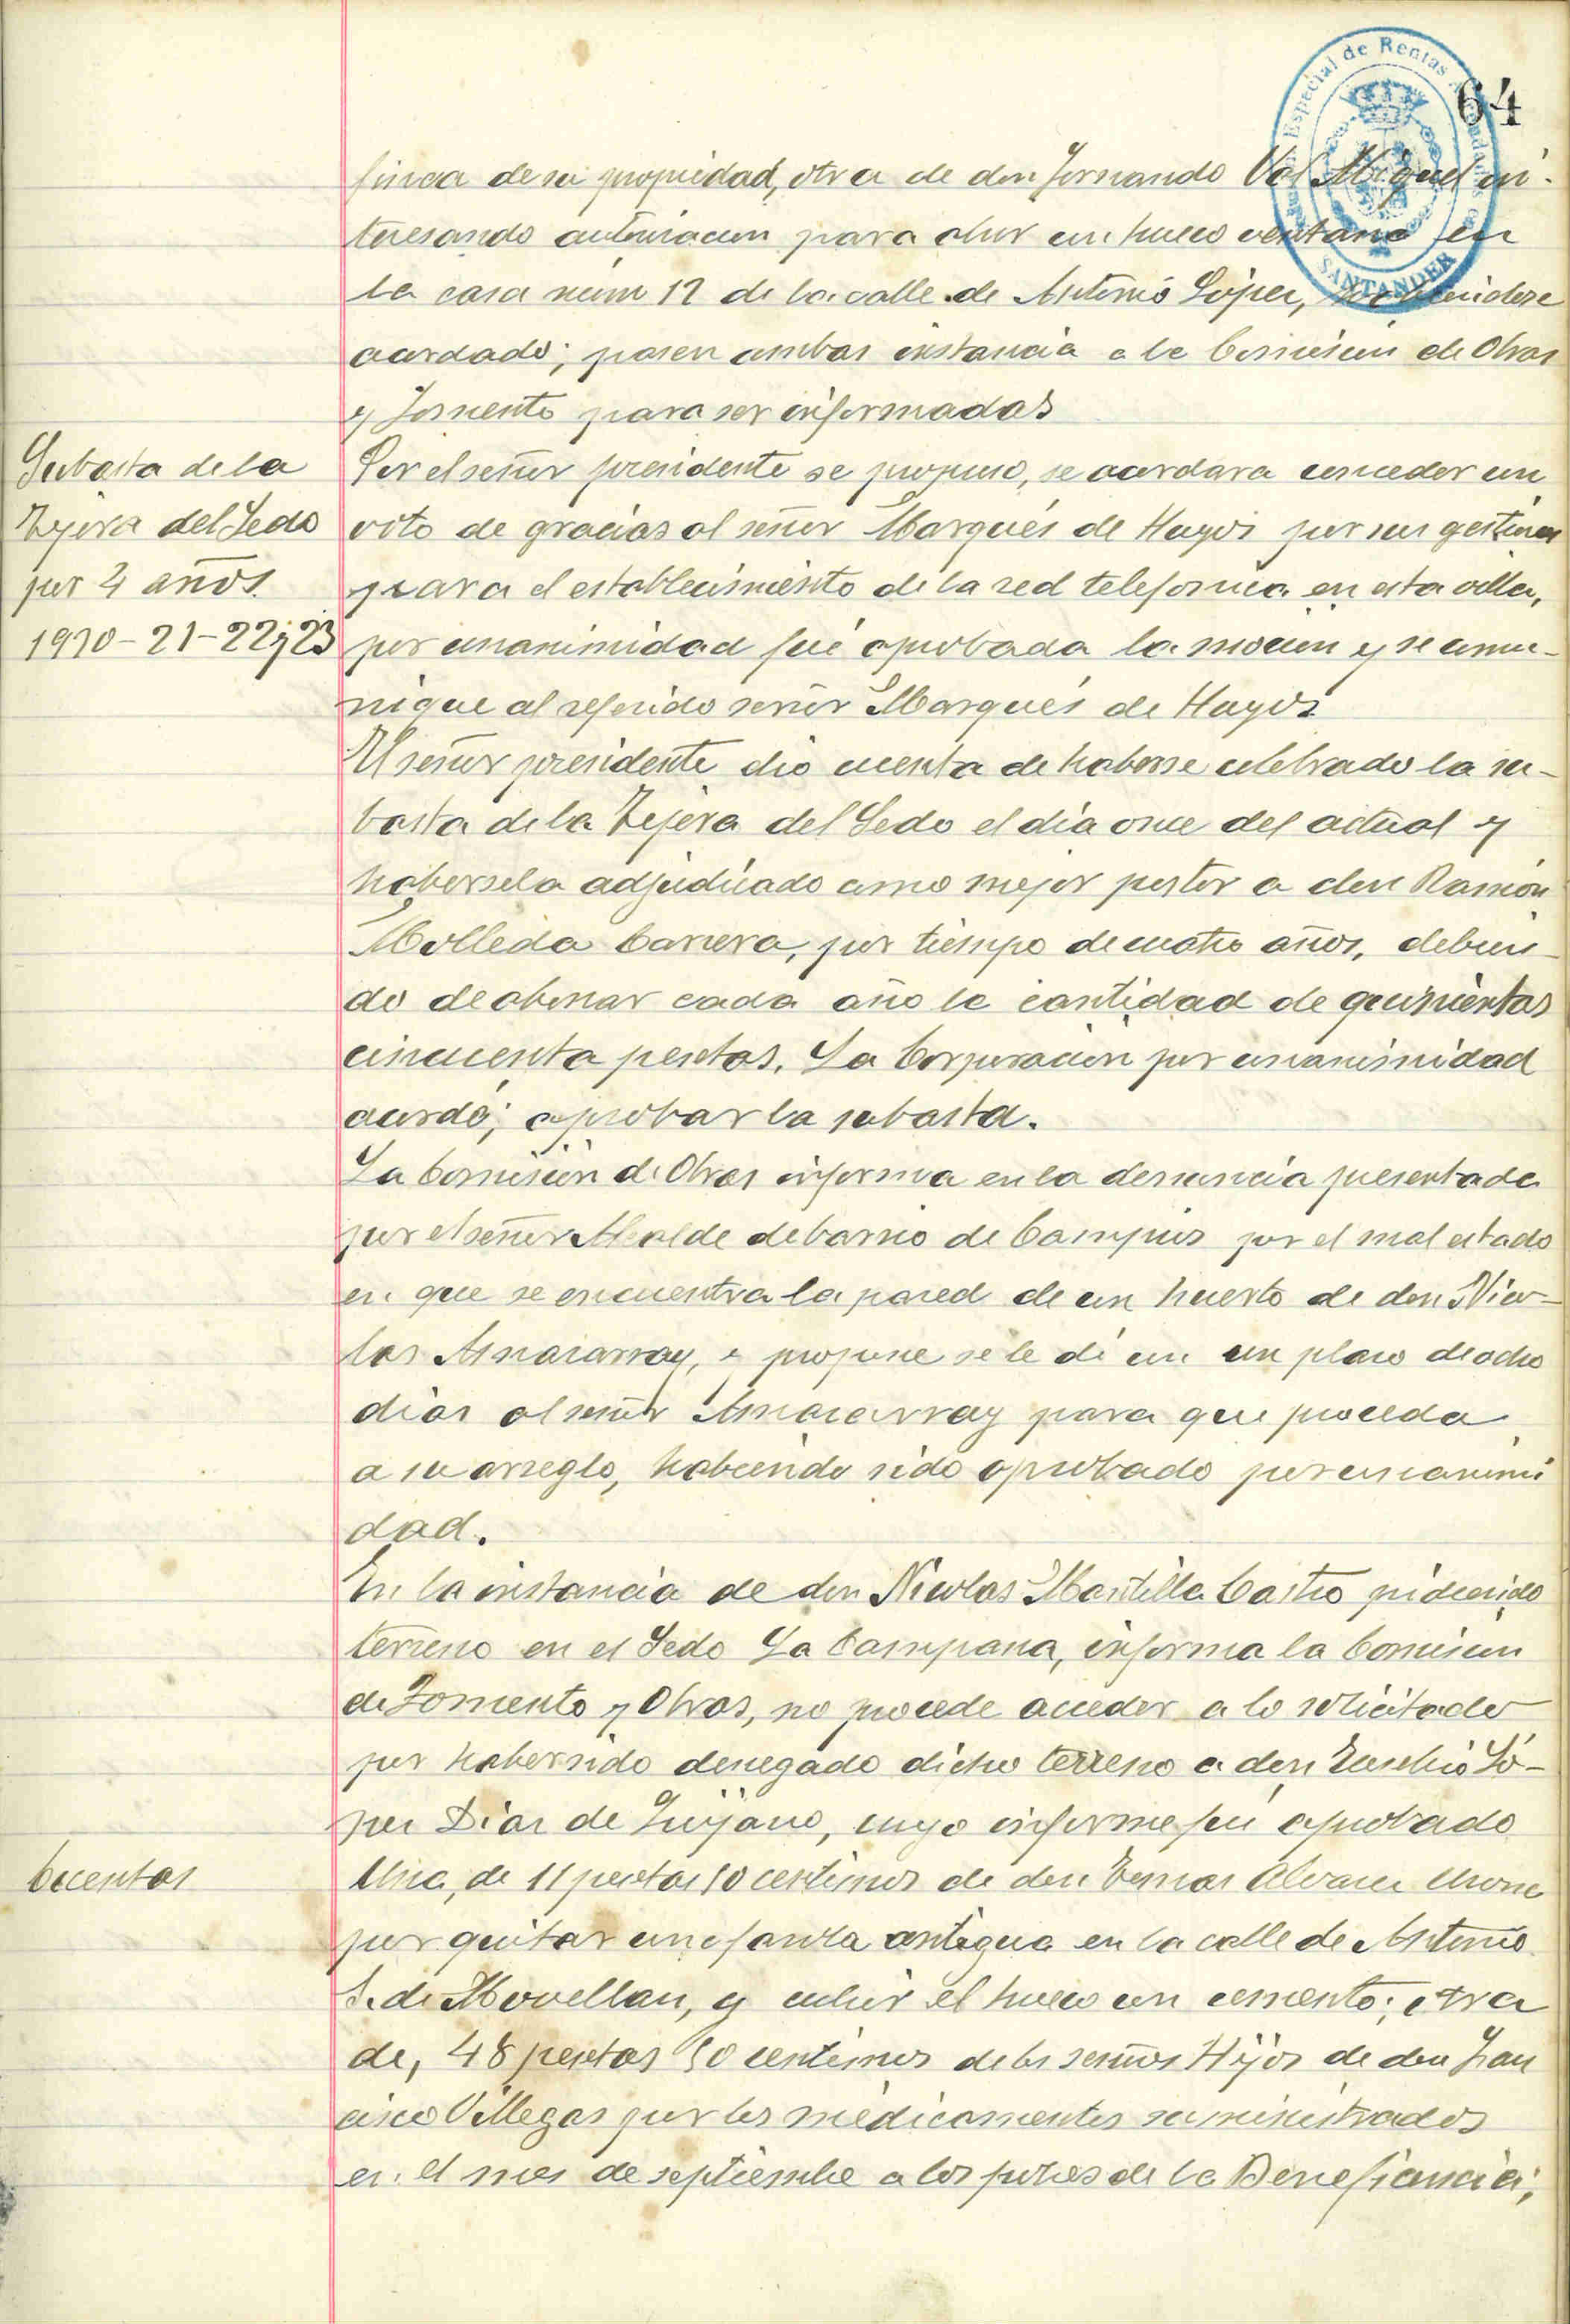 64
Especial de Rentas
SANTANDER
finca de su propiedad, otra de don Fernando Val Miguel in-
teresando autorizacion para abrir un hueco ventana en
la casa núm 12 de la calle de Antonio López,
acordado; pasen ambas instancia a la Comisión de Obras
y Fomento para ser informadas
Subasta de la
Tejera del Sedo
por 4 años.
1920-21-22 y 23
Por el señor presidente se propuso, se acordara conceder un
voto de gracias al señor Marqués de Hazas por sus gestiones
para el establecimiento de la red telefonica en esta villa,
por unanimidad fué aprobada la mocion y se comu-
nique al referido señor Marqués de Hazas
El señor presidente dio cuenta de haberse celebrado la su-
basta de la Tejera del Sedo el día once del actual y
habersela adjudicado como mejor postor a don Ramón
Molleda Carrera, por tiempo de cuatro años, debien-
do de abonar cada año la cantidad de quinientas
cincuenta pesetas. La Corporación por unanimidad
acordó; aprobar la subasta.
La Comision de Obras informa en la denuncia presentada
por el señor Alcalde de barrio de Campios por el mal estado
en que se encuentra la pared de un huerto de don Nico-
las Amararray, e propone se le dé un un plazo de ocho
dias al señor Amararray para que proceda
a su arreglo, habiendo sido aprobado por unanimi
dad.
En la instancia de don Nicolas Mantilla Castro pidiendo
terreno en el Sedo La Campana, informa la Comision
de Fomento y Obras, no procede acceder a lo solicitado
por haber sido denegado dicho terreno a don Eusebio Ló-
pez Diaz de Quijano, cuyo informe fué aprobado
Cuentas
Una, de 11 pesetas 10 centimos de don Tomas Alvarez
por quitar una farola antigua en la calle de Antonio
S. de Movellan, y cubrir el hueco con cemento; otra
de, 48 pesetas 50 centimos de los señores Hijos de don Fran
cisco Villegas por los medicamentos suministrados
en el mes de septiembre a los pobres de la Beneficencia;